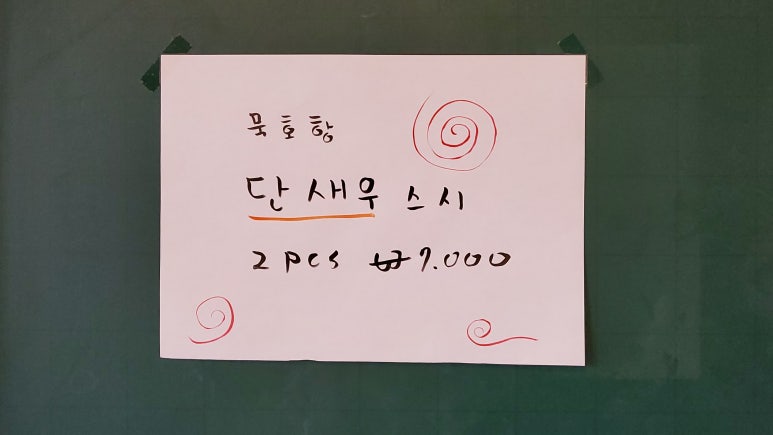 묵호항
단새우 스시
2 pcs ₩9.000